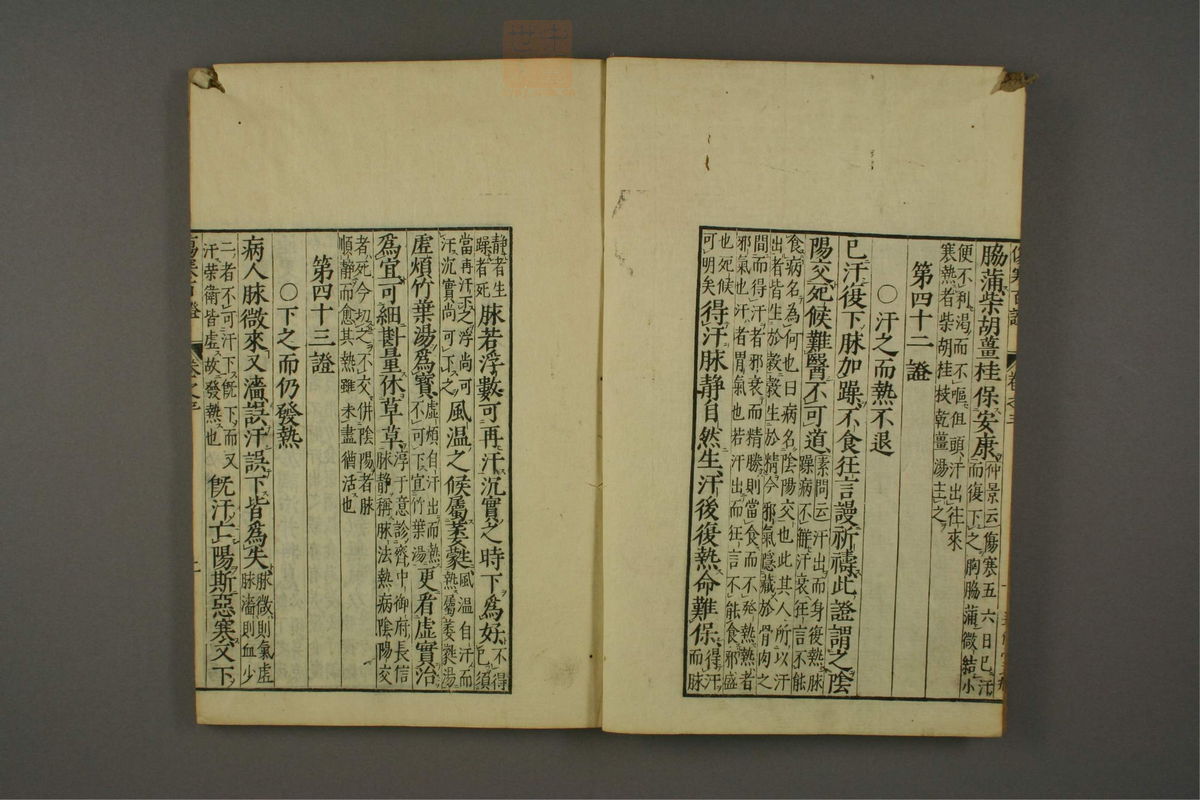 脇蒲柴胡薑桂保安康仲景云傷寒五六日已汗而復下之胸脇蒲微結小
便不利渴而不嘔但頭汗出往來寒熱者柴胡桂枝乾薑湯主之
第四十二證
○汗之而熱不退
已汗復下脉加躁不食狂言謾祈禱此證謂之陰
陽交死候難醫不可道素問云汗出而身復熱脉躁病不觧汗衰狂言不能
食病名為何也曰病名陰陽交也此其人所以汗出者皆生於穀穀生於精今邪氣隱藏於骨肉之
間而得汗者邪衰而精勝則當食而不發熱熱者邪氣也汗者胃氣也若汗出而狂言不能食邪盛
也死候可明矣得汗脉静自然生汗後復熱命難保得汗而脉
静者生躁者死脉若浮數可再汗沉實之時下為好不得已須
當再汗丕之浮尚可汗沉實尚可下之風温之候屬萎蕤風温自汗而熱屬萎蕤湯
虛煩竹葉湯爲寳虛煩自汗出而熱不可下宜竹葉湯更看虛實治
爲宜可細斟量休草草淳于意診齊中御府長信脉静稱脉法熱病陰陽交
者死今切之不交併陰陽者脉順静而愈其熱雖未盡猶活也
第四十三證
○下之而仍發熱
病人脉微來又濇誤汗誤下皆爲失脉微則氣虛脉濇則血少
二者不可汗下旣下而又汗榮衛皆虛故發熱也旣汗亡陽斯惡寒又下